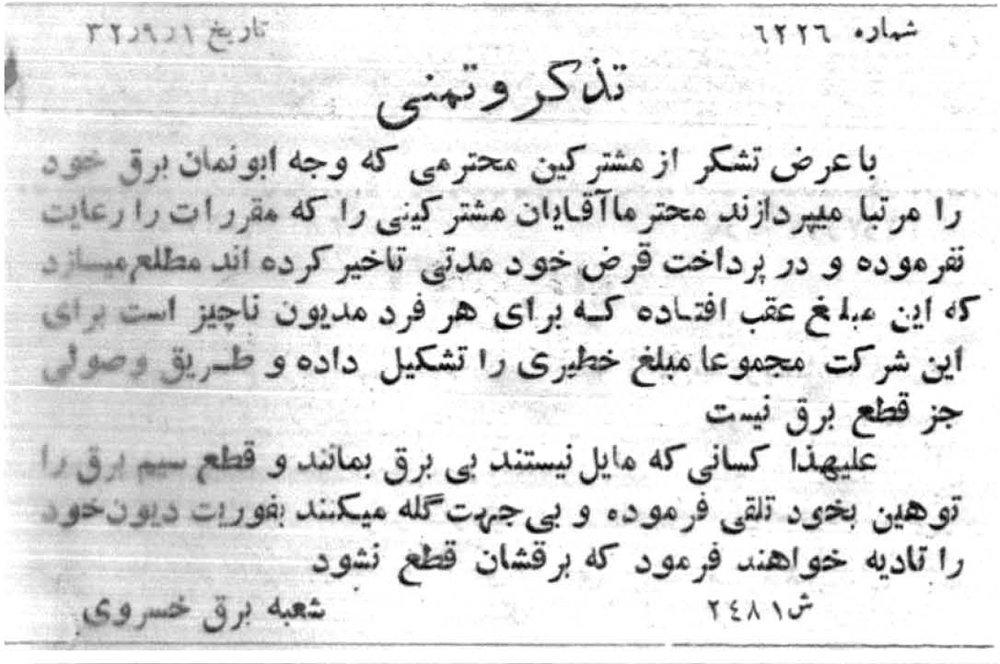 شماره ۶۲۲۶ تاریخ ۳۲٫۹٫۱
تذکر و تمنی
با عرض تشکر از مشترکین محترمی که وجه ابونمان برق خود
را مرتبا میپردازند محترماآقایان مشترکینی را که مقررات را رعایت
نفرموده و در پرداخت قرض خود مدتی تاخیر کرده اند مطلع میسازد
که این مبلغ عقب افتاده که برای هر فرد مدیون ناچیز است برای
این شرکت مجموعا مبلغ خطیری را تشکیل داده و طریق وصولی
جز قطع برق نیست
علیهذا کسانی که مایل نیستند بی برق بمانند و قطع سیم برق را
توهین بخود تلقی فرموده و بی جهت گله میکنند بفوریت دیون خود
را تادیه خواهند فرمود که برقشان قطع نشود
ش ۲۴۸۱ شعبه برق خسروی